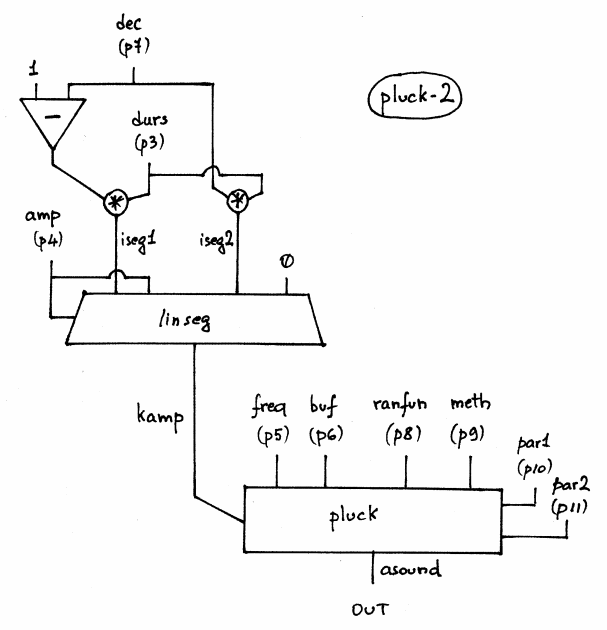 dec
(p7)
1
pluck-2
−
durs
(p3)
* *
amp
(p4)
iseg1 iseg2
0
linseg
kamp
freq buf ranfun meth
(p5) (p6) (p8) (p9)
par1
(p10)
par2
(p11)
pluck
asound
OUT